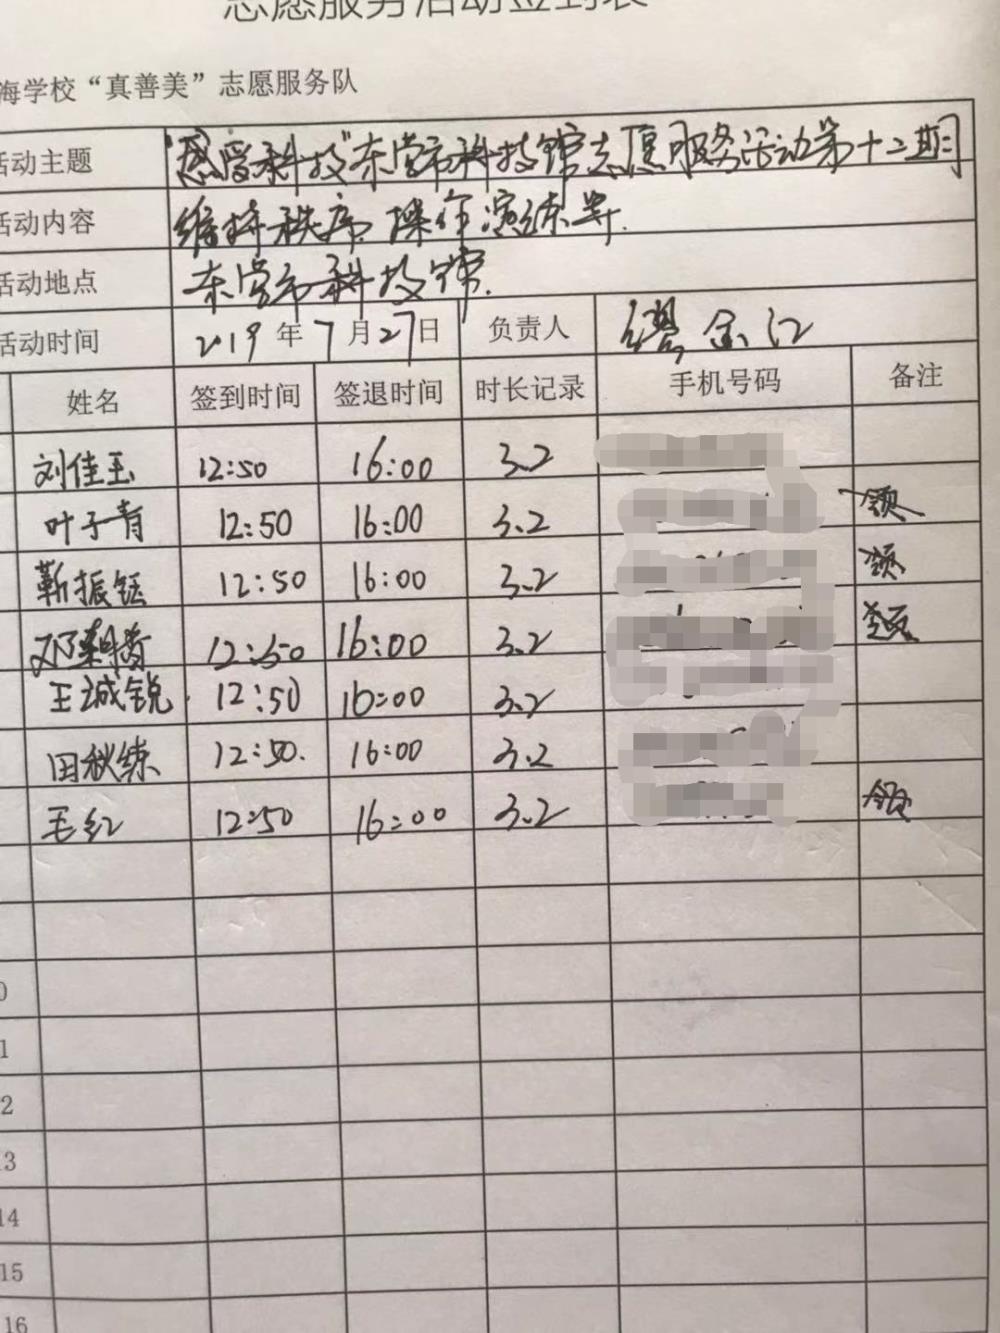 志愿服务活动签到表
海学校“真善美”志愿服务队
活动主题 “感受科技”东营市科技馆志愿服务活动第十二期
活动内容 维持秩序、操作演练等.
活动地点 东营市科技馆.
活动时间 2019年7月27日 负责人 金江
姓名 签到时间 签退时间 时长记录 手机号码 备注
刘佳玉 12:50 16:00 3.2
叶子青 12:50 16:00 3.2 领
靳振钰 12:50 16:00 3.2 领
邓 12:50 16:00 3.2 领
王诚锐 12:50 16:00 3.2
田秋练 12:50. 16:00 3.2
毛红 12:50 16:00 3.2 领
0
1
2
3
14
15
16